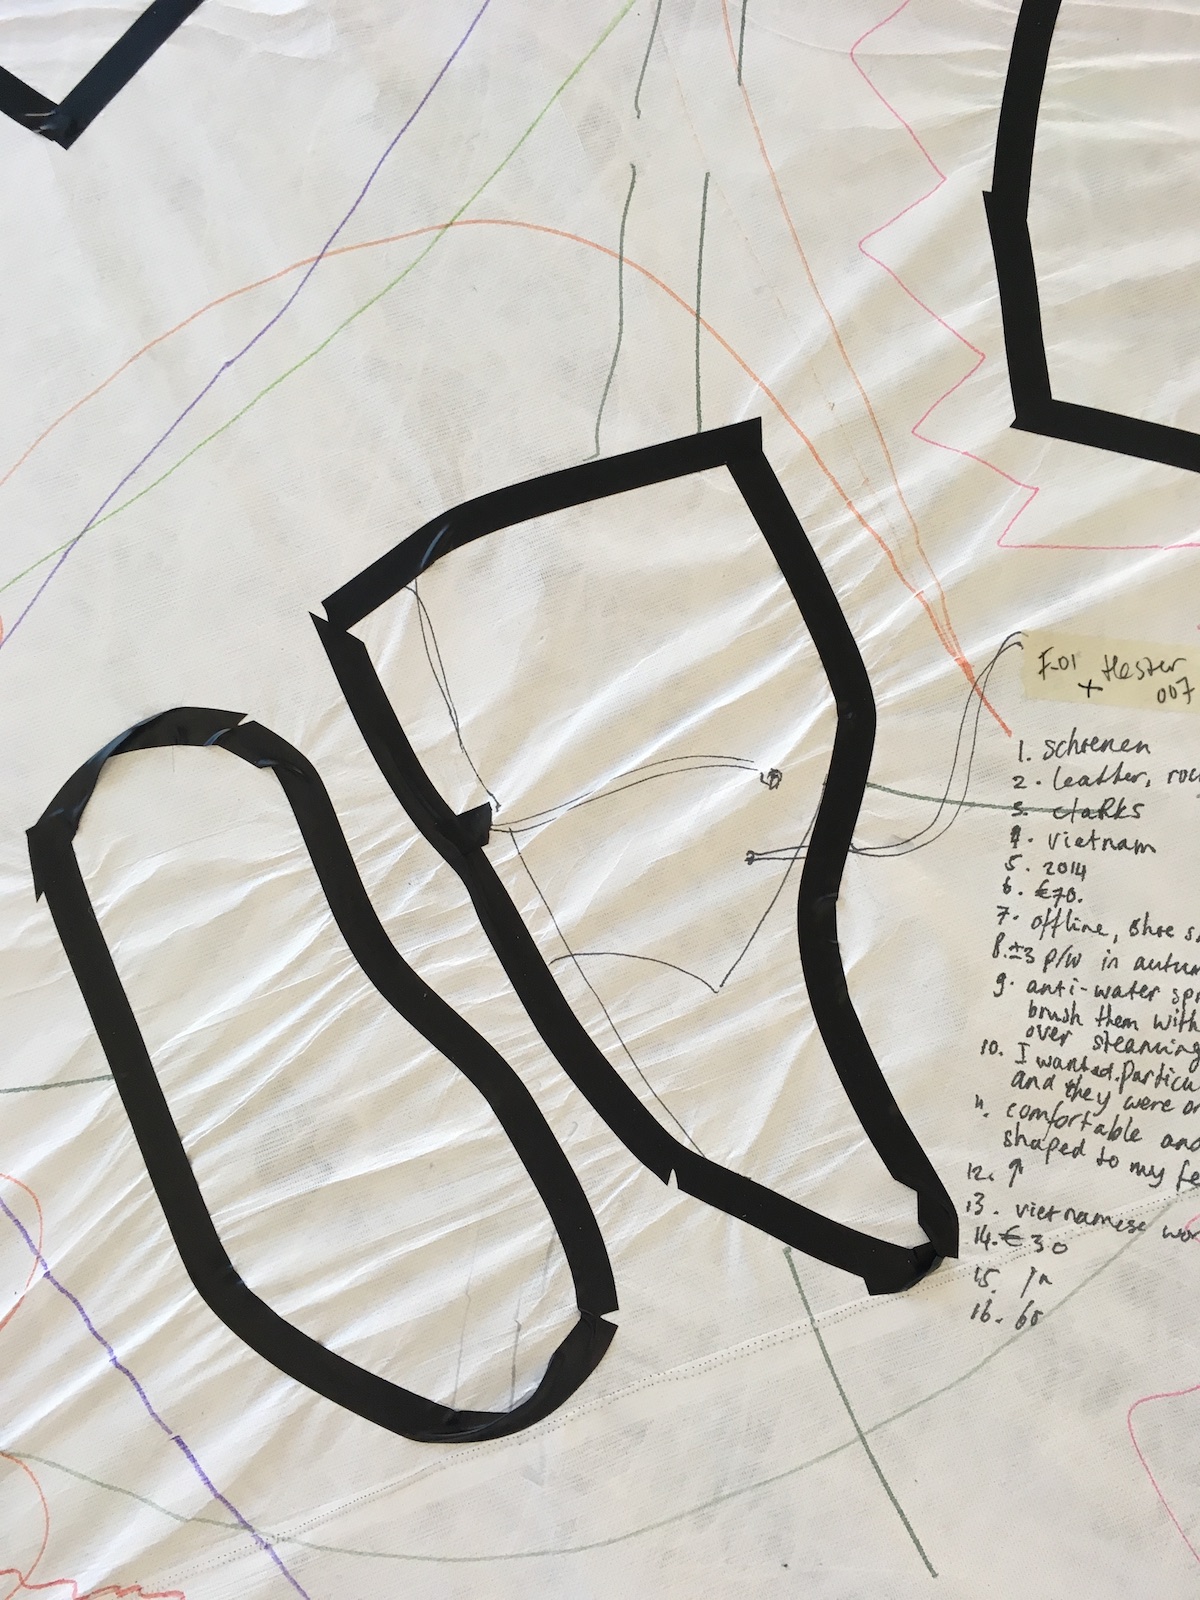 F-01 Hester
+ 007
1. schoenen
2. leather,
3. claRks
4. vietnam
5. 2014
6. €70.
7. offline, shoe
8. ±3 p/w in
9. anti-water
brush them with
over steaming
10. I wanted
and they were
11. comfortable and
shaped to my
12.
13. vietnamese
14. € 30
15.
16.